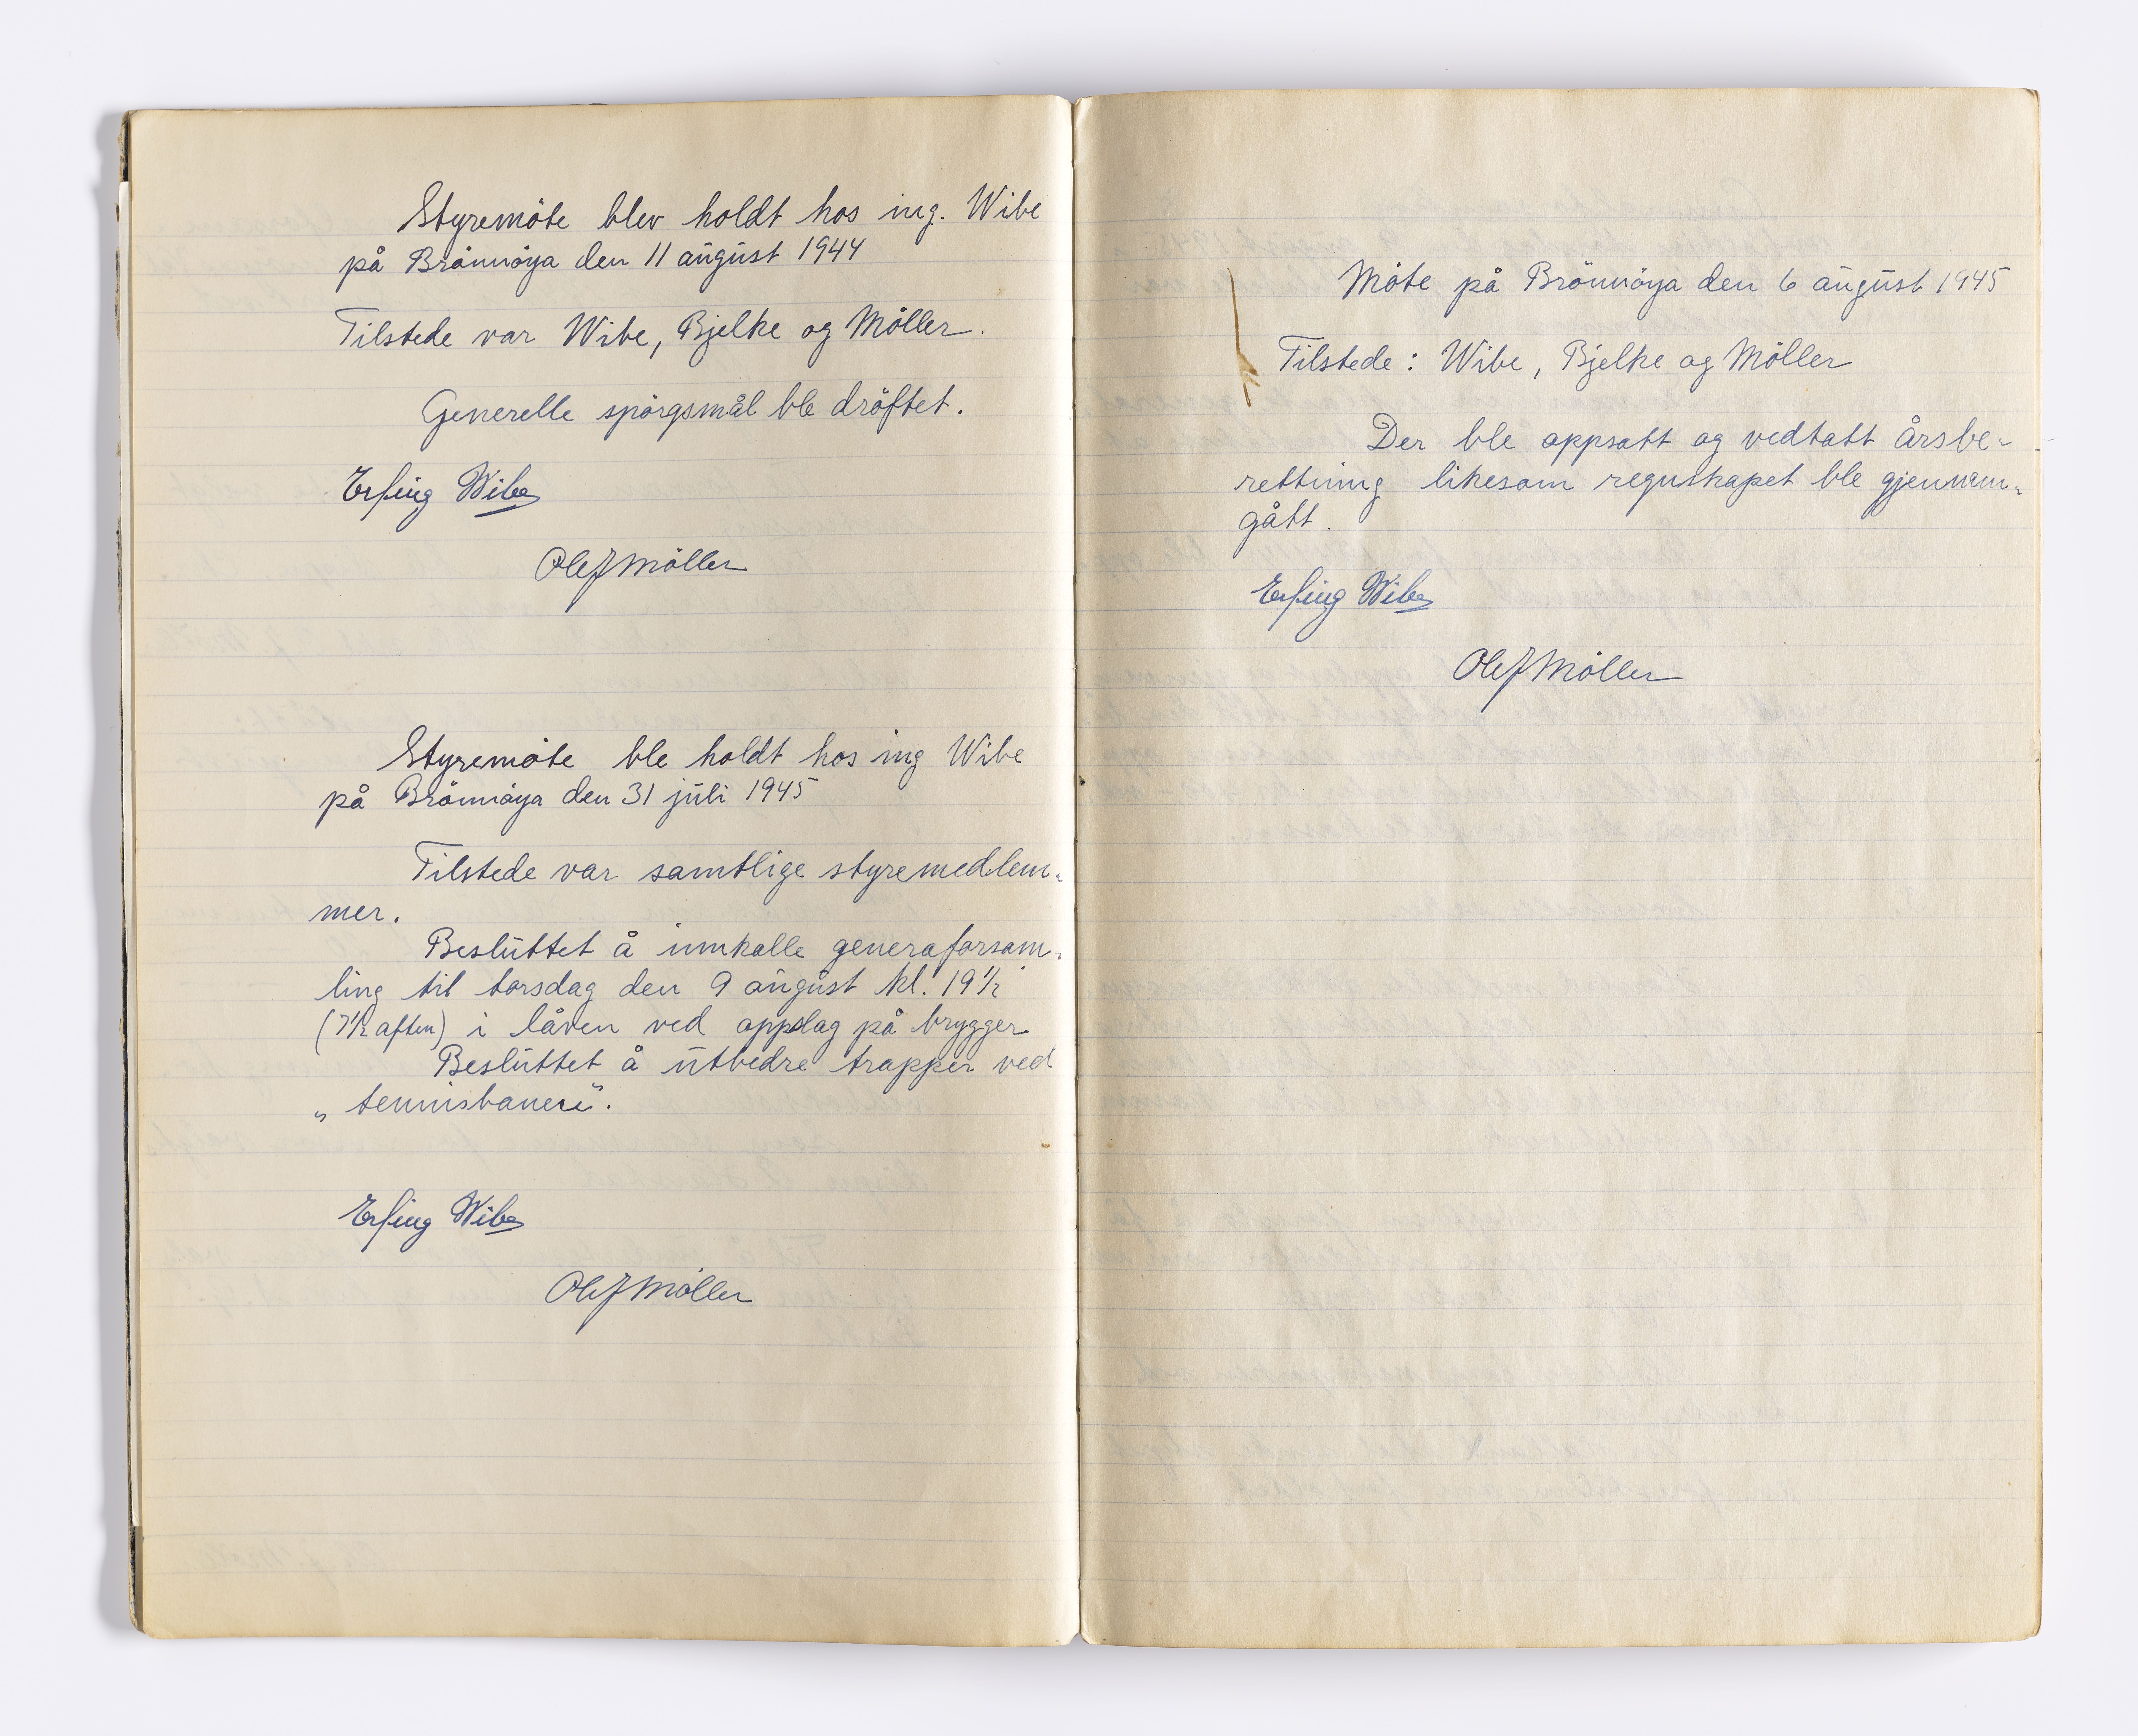 Styremöte blev holdt hos ing. Wibe
på Brönnöya den 11 august 1944
Tilstede var Wibe, Bjelke og Möller.
Generelle spörgsmål ble dröftet.
Erling Wibe
Olef Möller
Styremöte ble holdt hos ing Wibe
på Brönnöya den 31 juli 1945
Tilstede var samtlige styremedlem-
mer.
Besluttet å innkalle generaforsam-
ling til torsdag den 9 august kl. 19½
(7½ aften) i låven ved oppslag på brygger
Besluttet å utbedre trapper ved
„tennisbanen".
Erling Wibe
Olef Möller
Möte på Brönnöya den 6 august 1945
Tilstede: Wibe, Bjelke og Möller
Der ble oppsatt og vedtatt årsbe-
rettning likesom regnskapet ble gjennem-
gått.
Erling Wibe
Olef Möller